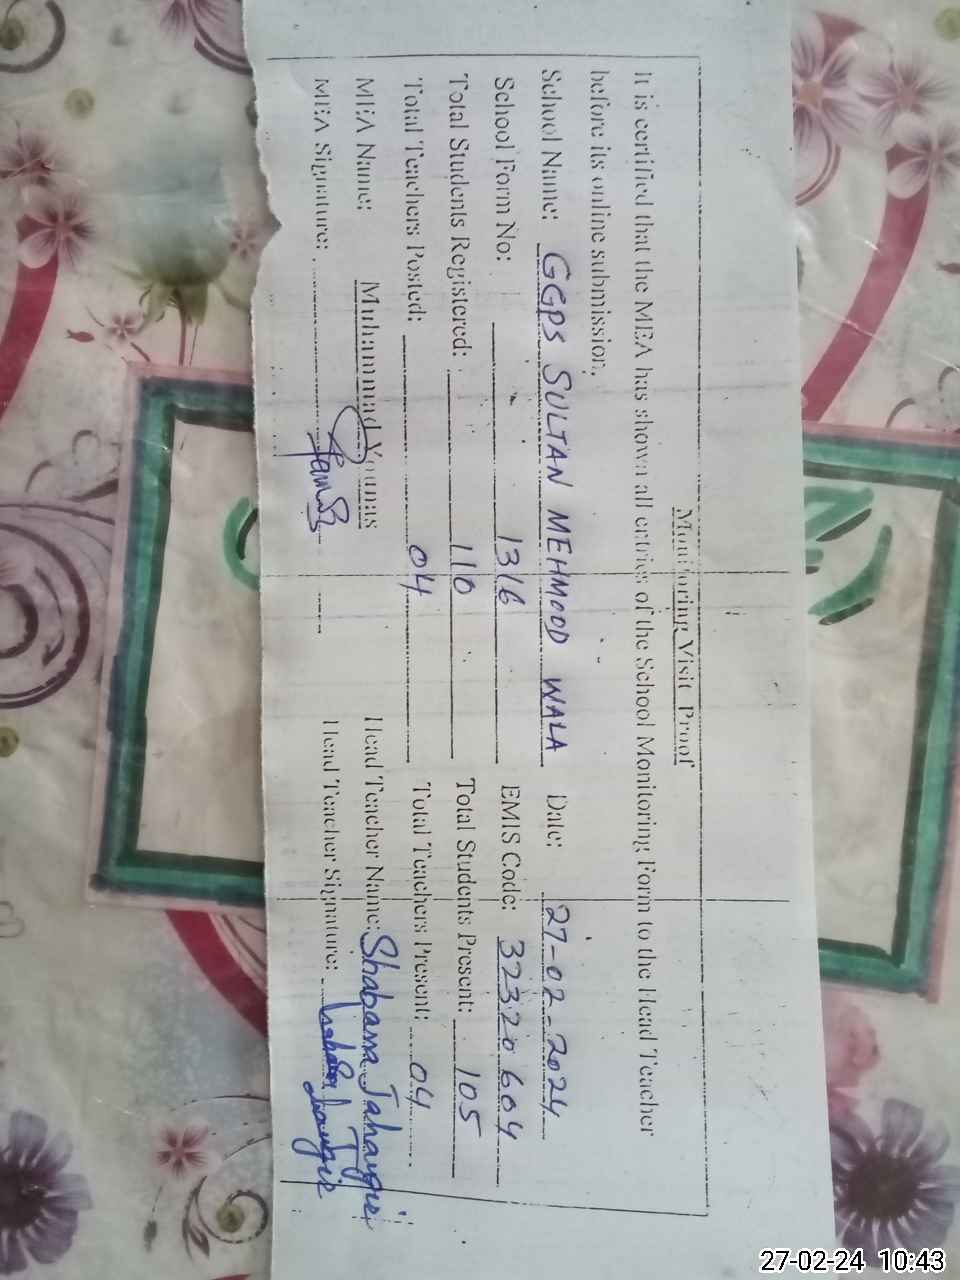 Monitoring Visit Proof
It is certified that the MEA has shown all entries of the School Monitoring Form to the Head Teacher
before its online submission.
School Name: GGPS SULTAN MEHMOOD WALA Date: 27-02-2024
School Form No: 1316 EMIS Code: 32320604
Total Students Registered: 110 Total Students Present: 105
Total Teachers Posted: 04 Total Teachers Present: 04
MEA Name: Muhammad Younas Head Teacher Name: Shabana Jahangir
MEA Signature: Head Teacher Signature:
27-02-24 10:43